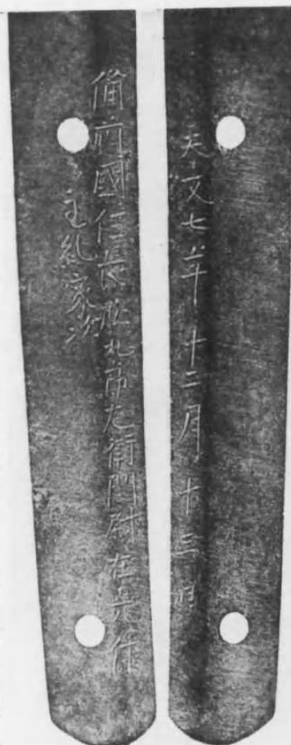 天文七年十二月十三日
備前國住長船九郎左衛門尉在光作
主紀家次